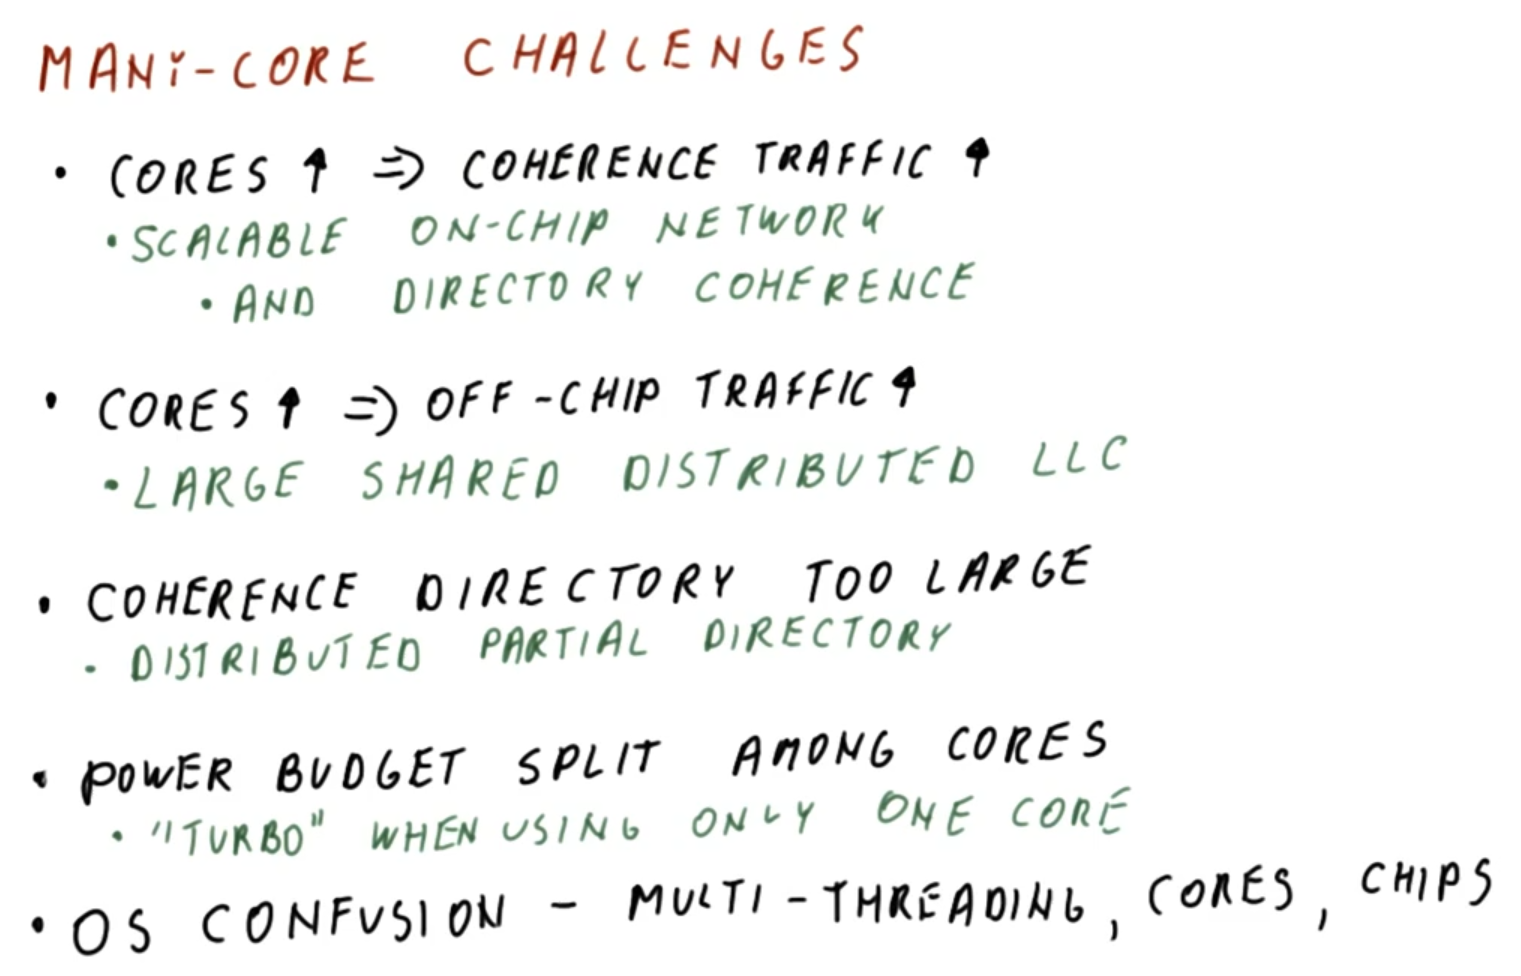 MANi-CORE CHALLENGES
• CORES ↑ ⇒ COHERENCE TRAFFIC ↑
• SCALABLE ON-CHIP NETWORK
• AND DIRECTORY COHERENCE
• CORES ↑ ⇒ OFF-CHIP TRAFFIC ↑
• LARGE SHARED DISTRIBUTED LLC
• COHERENCE DIRECTORY TOO LARGE
- DISTRIBUTED PARTIAL DIRECTORY
• POWER BUDGET SPLIT AMONG CORES
• "TURBO" WHEN USING ONLY ONE CORE
• OS CONFUSION - MULTI-THREADING, CORES, CHIPS